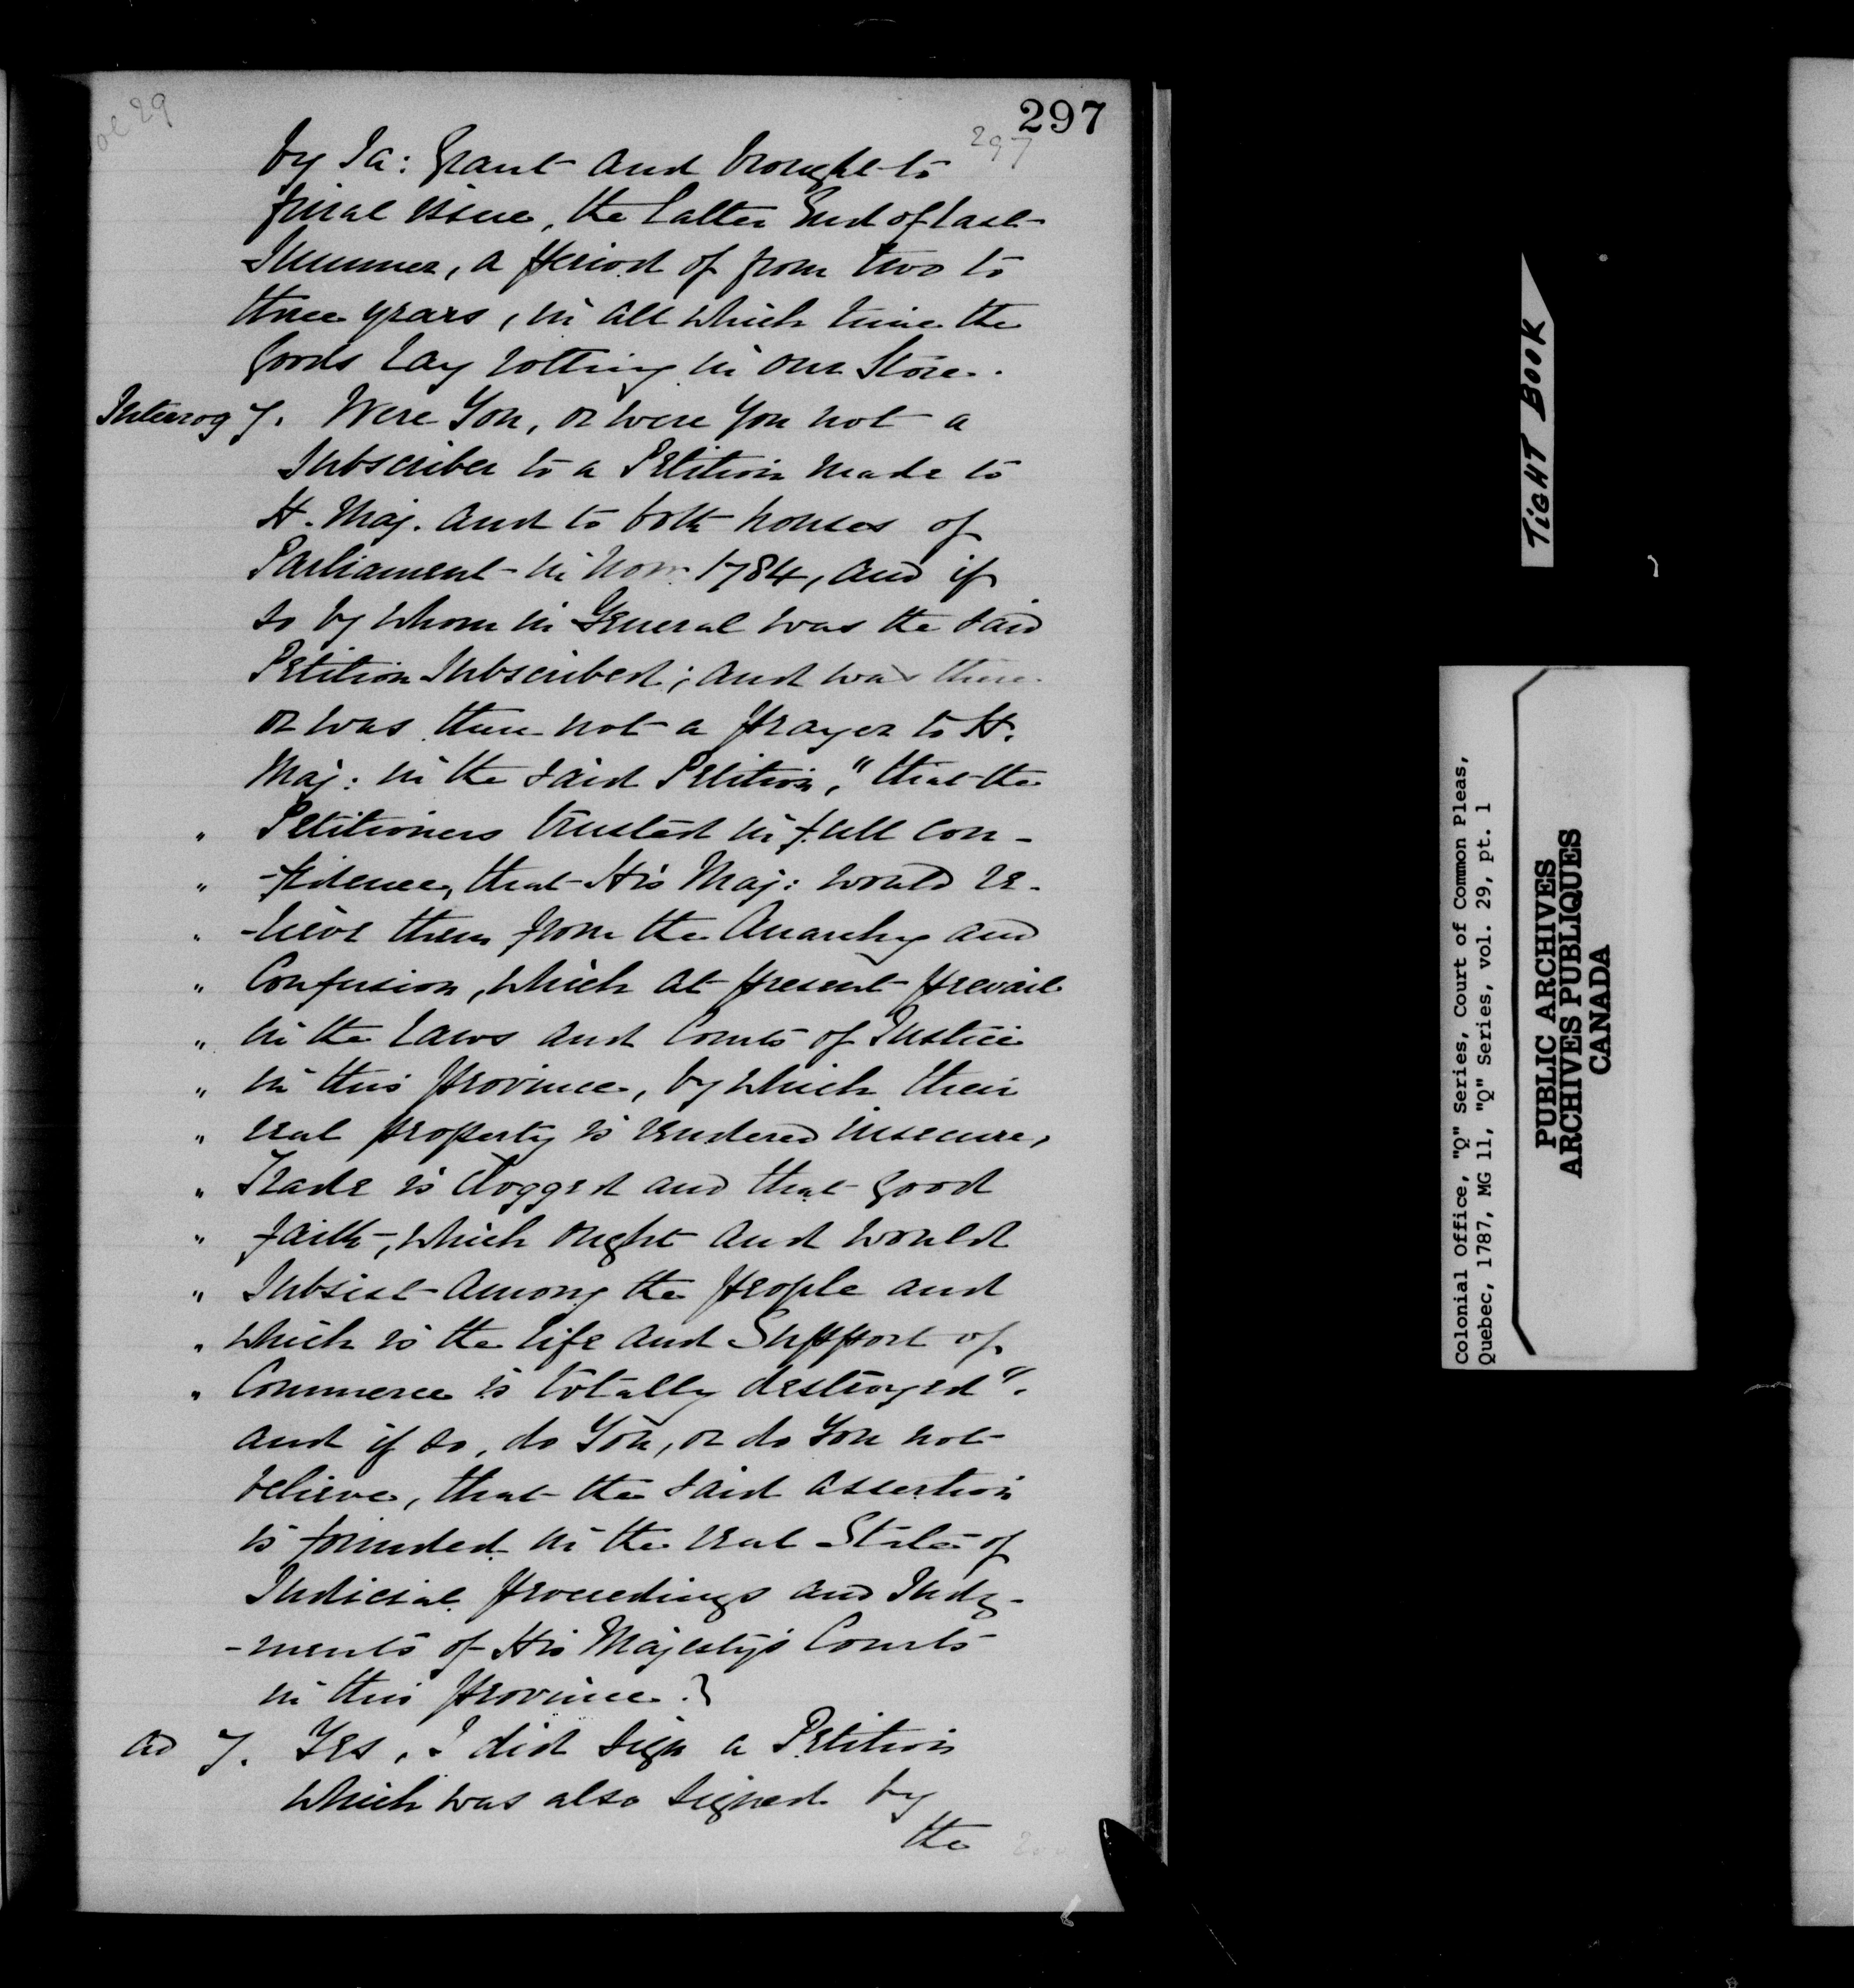 297
297
by Ja: Grant and brought to
final issue, the latter End of last
Summer, a period of from two to
three years, in all which time the
Goods lay rotting in our Store.
Interrog 7. Were You, or were You not a
Subscriber to a Petition made to
H. Maj. and to both houses of
Parliament in Novr 1784, and if
so by whom in General was the said
Petition Subscribed; and was there
or was there not a prayer to H.
Maj: in the said Petition, "that the
" Petitioners trusted in full con-
" -fidence, that His Maj: would re-
" -lieve them from the Anarchy and
" Confusion, which at present prevail
" in the Laws and Courts of Justice
" in this province, by which their
" real property is rendered insecure,
" Trade is clogged and that good
" faith, which ought and would
" Subsist among the people and
" which is the life and Support of
" Commerce is totally destroyed".
and if so, do You, or do You not
believe, that the said assertion
is founded in the real State of
Judicial proceedings and Judg-
-ments of His Majesty's Courts
in this province?
ad 7. Yes, I did sign a Petition
which was also signed by
the
TIGHT BOOK
Colonial Office, "Q" Series, Court of Common Pleas,
Quebec, 1787, MG 11, "Q" Series, vol. 29, pt. 1
PUBLIC ARCHIVES
ARCHIVES PUBLIQUES
CANADA